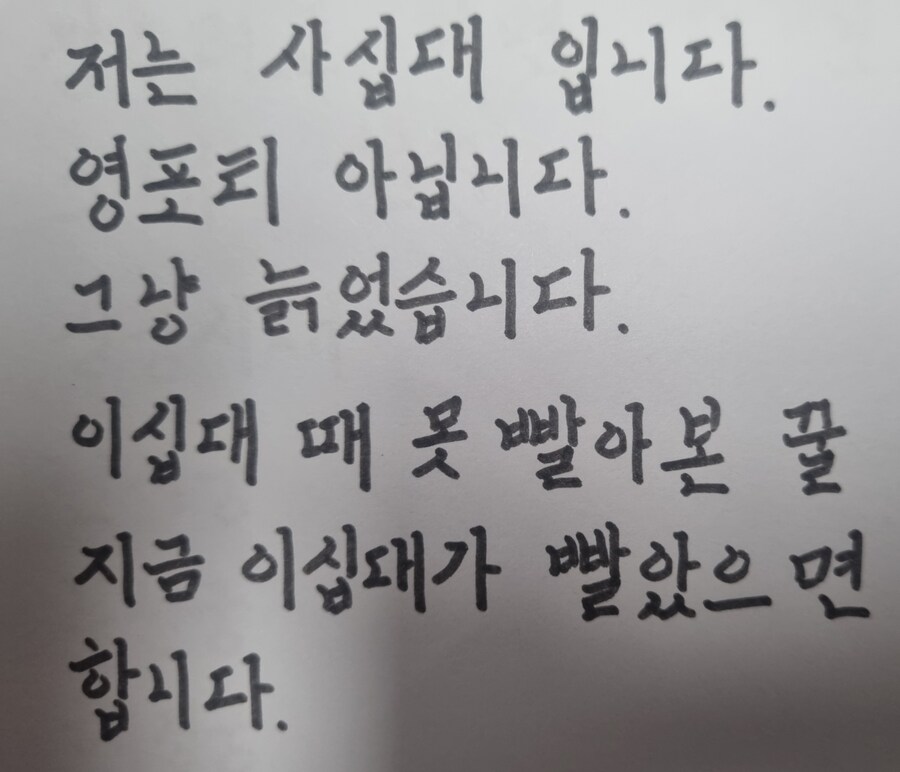 저는 사십대 입니다.
영포티 아닙니다.
그냥 늙었습니다.
이십대 때 못 빨아본 꿀
지금 이십대가 빨았으면
합니다.